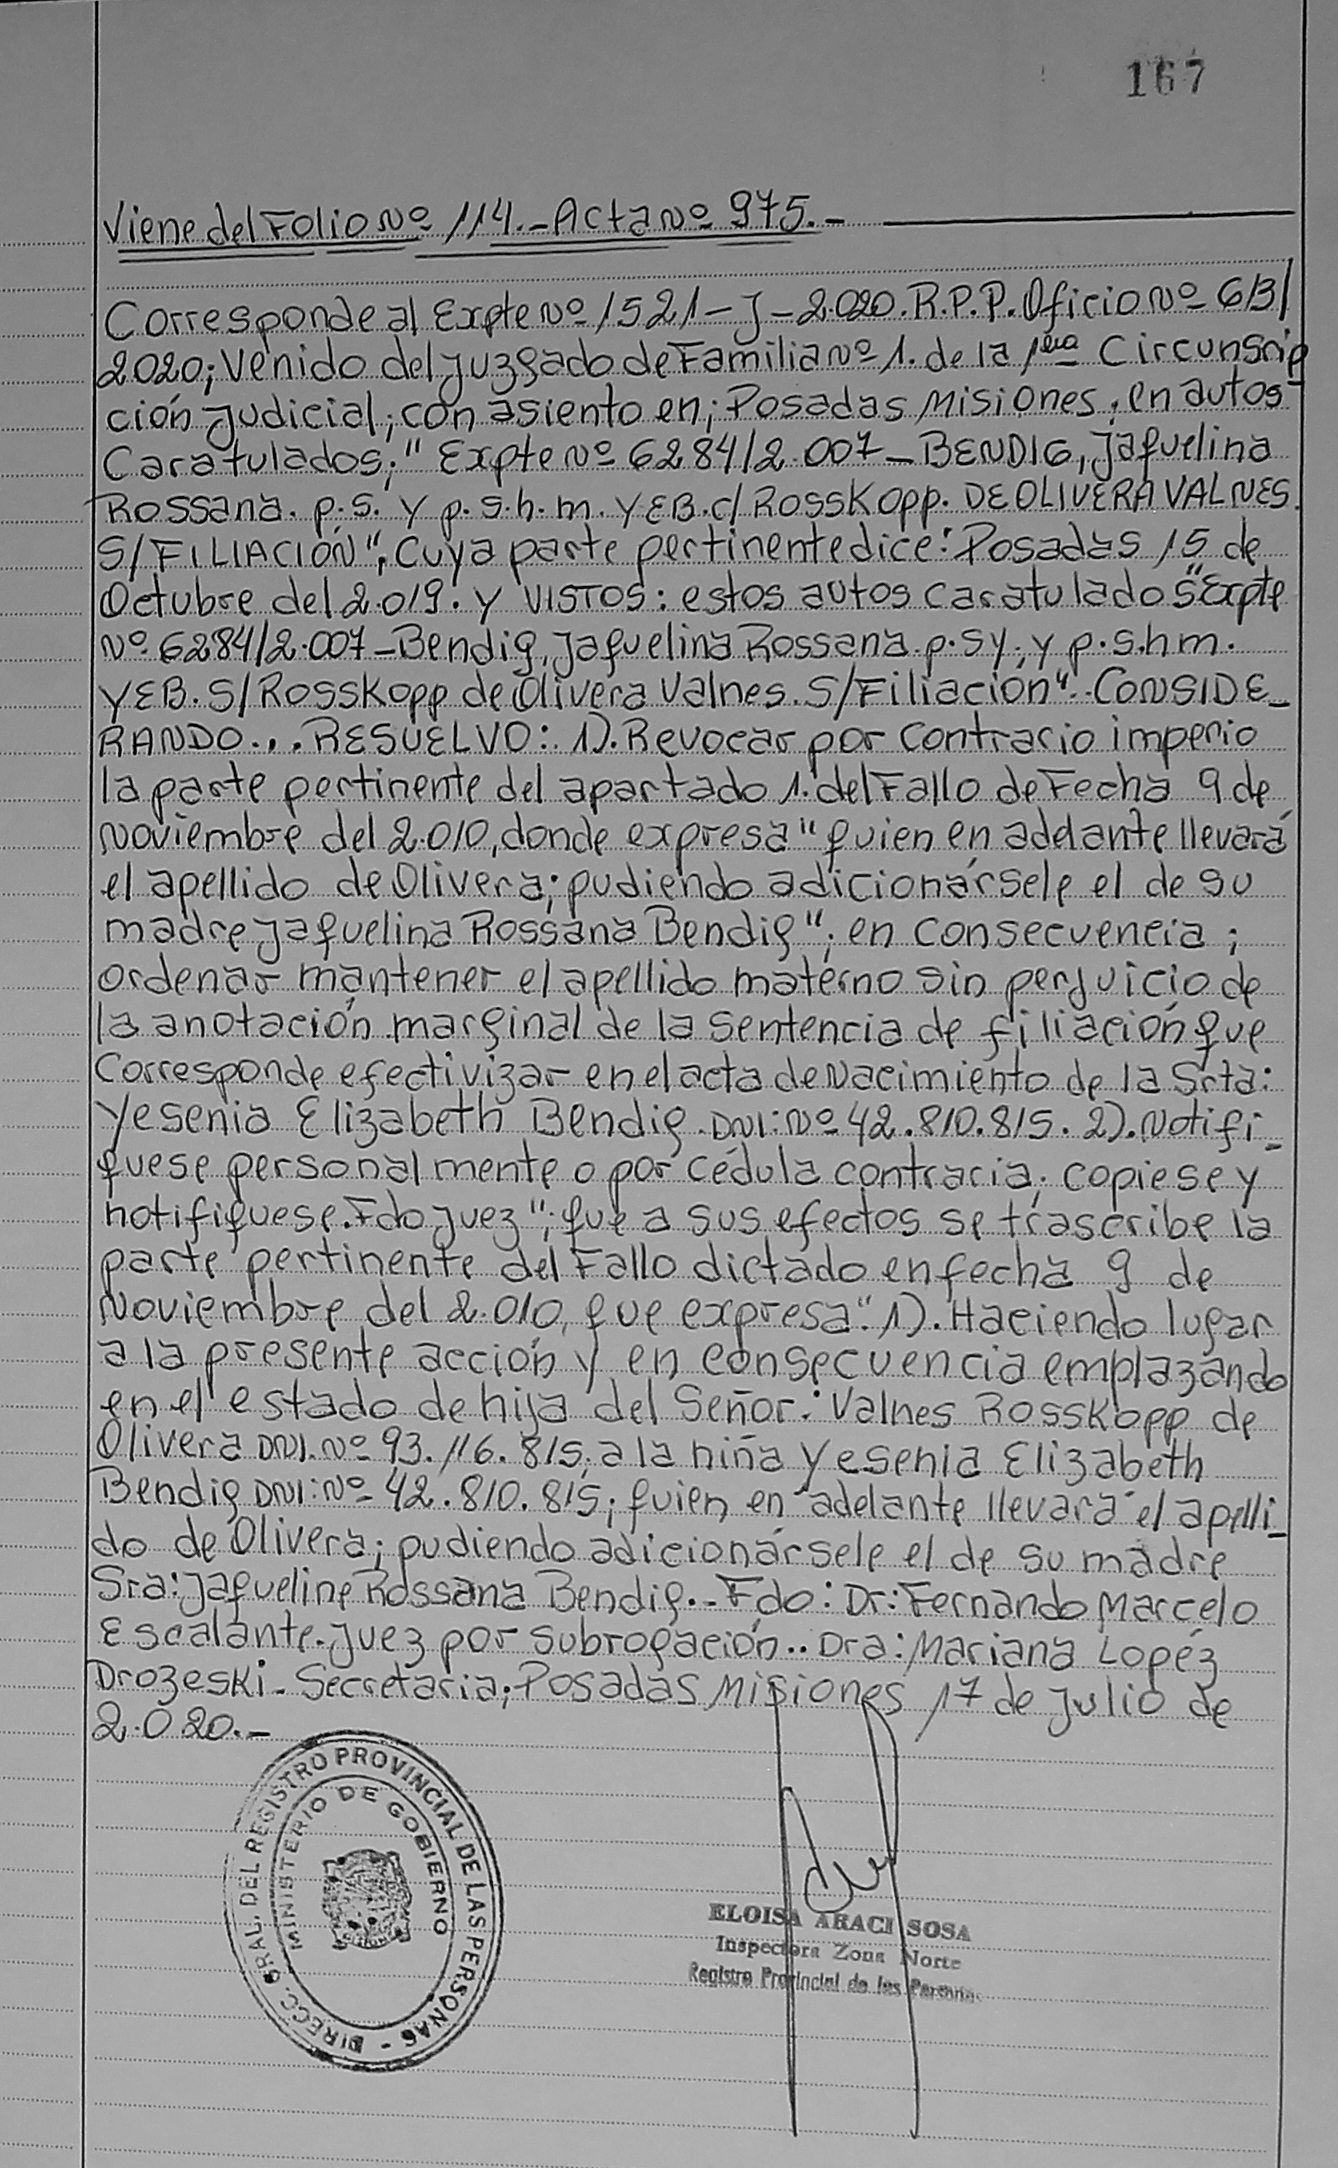 167
Viene del Folio Nº 114.- Acta Nº 975.-
Corresponde al Expte Nº 1521-J-2.020. R.P.P. Oficio Nº 613/
2020; Venido del Juzgado de Familia Nº 1. de la 1era Circunscrip
ción Judicial; con asiento en; Posadas Misiones, en autos
Caratulados; "Expte Nº 6284/2.007_BENDIG, Jaquelina
Rossana. p.s. y p.s.h.m. YEB. c/ ROSSKOpp. DE OLIVERA VALNES.
S/FILIACIÓN", Cuya parte pertinente dice: Posadas 15 de
Octubre del 2.019. y VISTOS: estos autos caratulado S"Expte
Nº 6284/2.007_Bendig, Jaquelina Rossana. p.sy. y p.s.h m.
YEB. S/Rosskopp de Olivera Valnes. S/Filiación". CONSIDE_
RANDO... RESUELVO: 1). Revocar por contrario imperio
la parte pertinente del apartado 1. del Fallo de Fecha 9 de
Noviembre del 2.010, donde expresa "quien en adelante llevará
el apellido de Olivera; pudiendo adicionársele el de su
madre Jaquelina Rossana Bendig"; en consecuencia;
ordenar mantener el apellido materno sin perjuicio de
la anotación marginal de la sentencia de filiación que
Corresponde efectivizar en el acta de Nacimiento de la Srta:
Yesenia Elizabeth Bendig. DNI: Nº 42.810.815. 2). Notifi_
quese personal mente o por cédula contraria; copiese y
notifiquese. Fdo Juez"; que a sus efectos se trascribe la
parte pertinente del Fallo dictado en fecha 9 de
Noviembre del 2.010, que expresa "1). Haciendo lugar
a la presente acción y en consecuencia emplazando
en el estado de hija del Señor: Valnes Rosskopp de
Olivera DNI. Nº 93.116.815; a la niña Yesenia Elizabeth
Bendig DNI: Nº 42.810.815; quien en adelante llevará el apelli_
do de Olivera; pudiendo adicionársele el de su madre
Sra: Jaqueline Rossana Bendig.- Fdo: Dr: Fernando Marcelo
Escalante. Juez por subrogación.. Dra: Mariana Lopéz
Drozeski. Secretaria; Posadas Misiones 17 de Julio de
2.020.-
DIRECC. GRAL. DEL REGISTRO PROVINCIAL DE LAS PERSONAS -
MINISTERIO DE GOBIERNO
ELOISA ARACI SOSA
Inspectora Zona Norte
Registro Provincial de las Personas